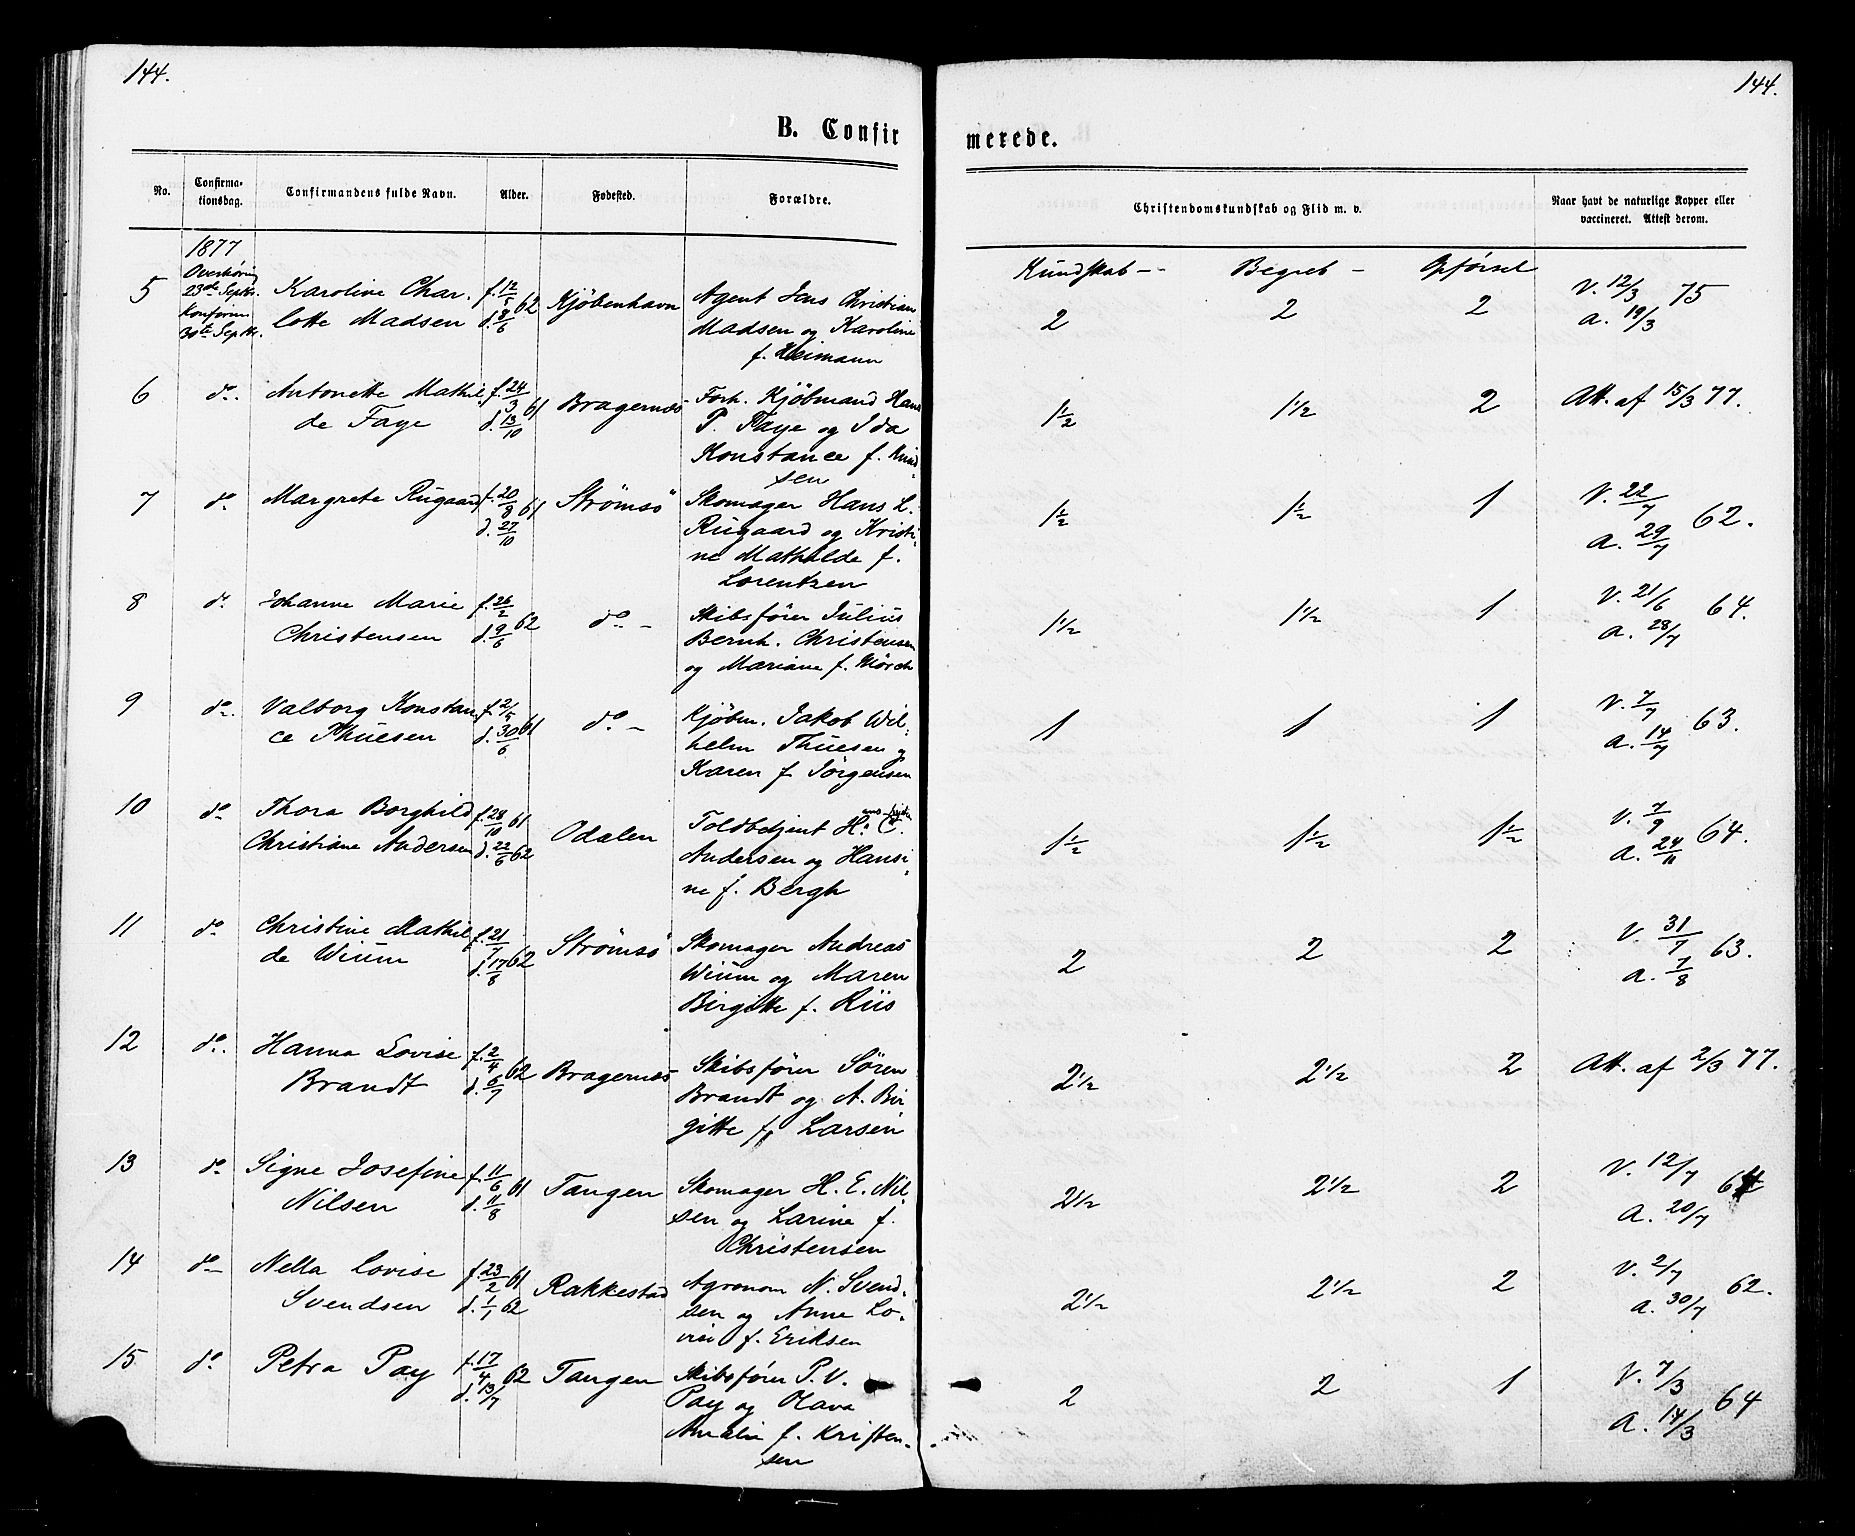 144.
144.
B. Confir
merede.
No.
Confirma-
tionsdag.
Confirmandens fulde Navn.
Alder.
Fødested.
Forældre.
Christendomskundskab og Flid m. v.
Naar havt de naturlige Kopper eller
vaccineret. Attest derom.
1877
Overhøring
23de Septbr.
Konform.
30te Septbr.
Kundskab -
Begreb -
Opførsel
5
Karoline Char-
lotte Madsen
f. 12/5 62
d. 8/6
Kjöbenhavn
Agent Jens Christian
Madsen og Karoline
f. Heimann
2
2
2
V. 12/3 75
a. 19/3
6
do.
Antonette Mathil-
de Faye
f. 24/3 61
d. 13/10
Bragernæs
Forh. Kjöbmand Hans
P. Faye og Ida
Konstance f. Knud-
sen
1 1/2
1 1/2
2
Att. af 15/3 77.
7
do
Margrete Rugaard
f. 20/8 61
d. 27/10
Strömsö
Skomager Hans L.
Rugaard og Kristi-
ne Mathilde f.
Lorentzen
1 1/2
1 1/2
1
V. 22/7 62.
a. 29/7
8
do
Johanne Marie
Christensen
f. 26/2 62
d. 9/6
do -
Skibsfører Julius
Bernh. Christensen
og Mariane f. Mörch
1 1/2
1 1/2
1
V. 21/6 64.
a. 28/7
9
do.
Valborg Konstan
ce Thuesen
f. 2/5 61
d. 30/6
do -
Kjöbm. Jakob Wil-
helm Thuesen og
Karen f. Jörgensen
1
1
1
V. 7/7 63.
a. 14/7
10
do
Thora Borghild
Christiane Andersen
f. 28/10 61
d. 22/6 62
Odalen
Toldbetjent H. C.
Andersen og Hansi-
ne f. Bergh
1 1/2
1 1/2
1 1/2
V. 7/9 64.
a. 24/11
11
do
Christine Mathil
de Wium
f. 21/7 62
d. 17/8
Strömsö
Skomager Andreas
Wium og Maren
Birgitte f. Riis
2
2
2
V. 31/7 63.
a. 7/8
12
do.
Hanna Lovise
Brandt
f. 2/4 62
d. 6/7
Bragernæs
Skibsfører Sören
Brandt og A. Bir
gitte f. Larsen
2 1/2
2 1/2
2
Att. af 2/3 77.
13
do
Signe Josefine
Nilsen
f. 11/6 61
d. 11/8
Tangen
Skomager H. E. Nil-
sen og Larine f.
Christensen
2 1/2
2 1/2
2
V. 12/7 64
a. 20/7
14
do
Nella Lovise
Svendsen
f. 23/2 61
d. 1/1 62
Rakkestad
Agronom N. Svend-
sen og Anne Lo-
vise f. Eriksen
2 1/2
2 1/2
2
V. 2/7 62.
a. 30/7
15
do
Petra Pay
f. 17/4 62
d. 13/7
Tangen
Skibsfører P. V.
Pay og Olava
Amalie f. Kristen-
sen
2
2
1
V. 7/3 64
a. 14/3